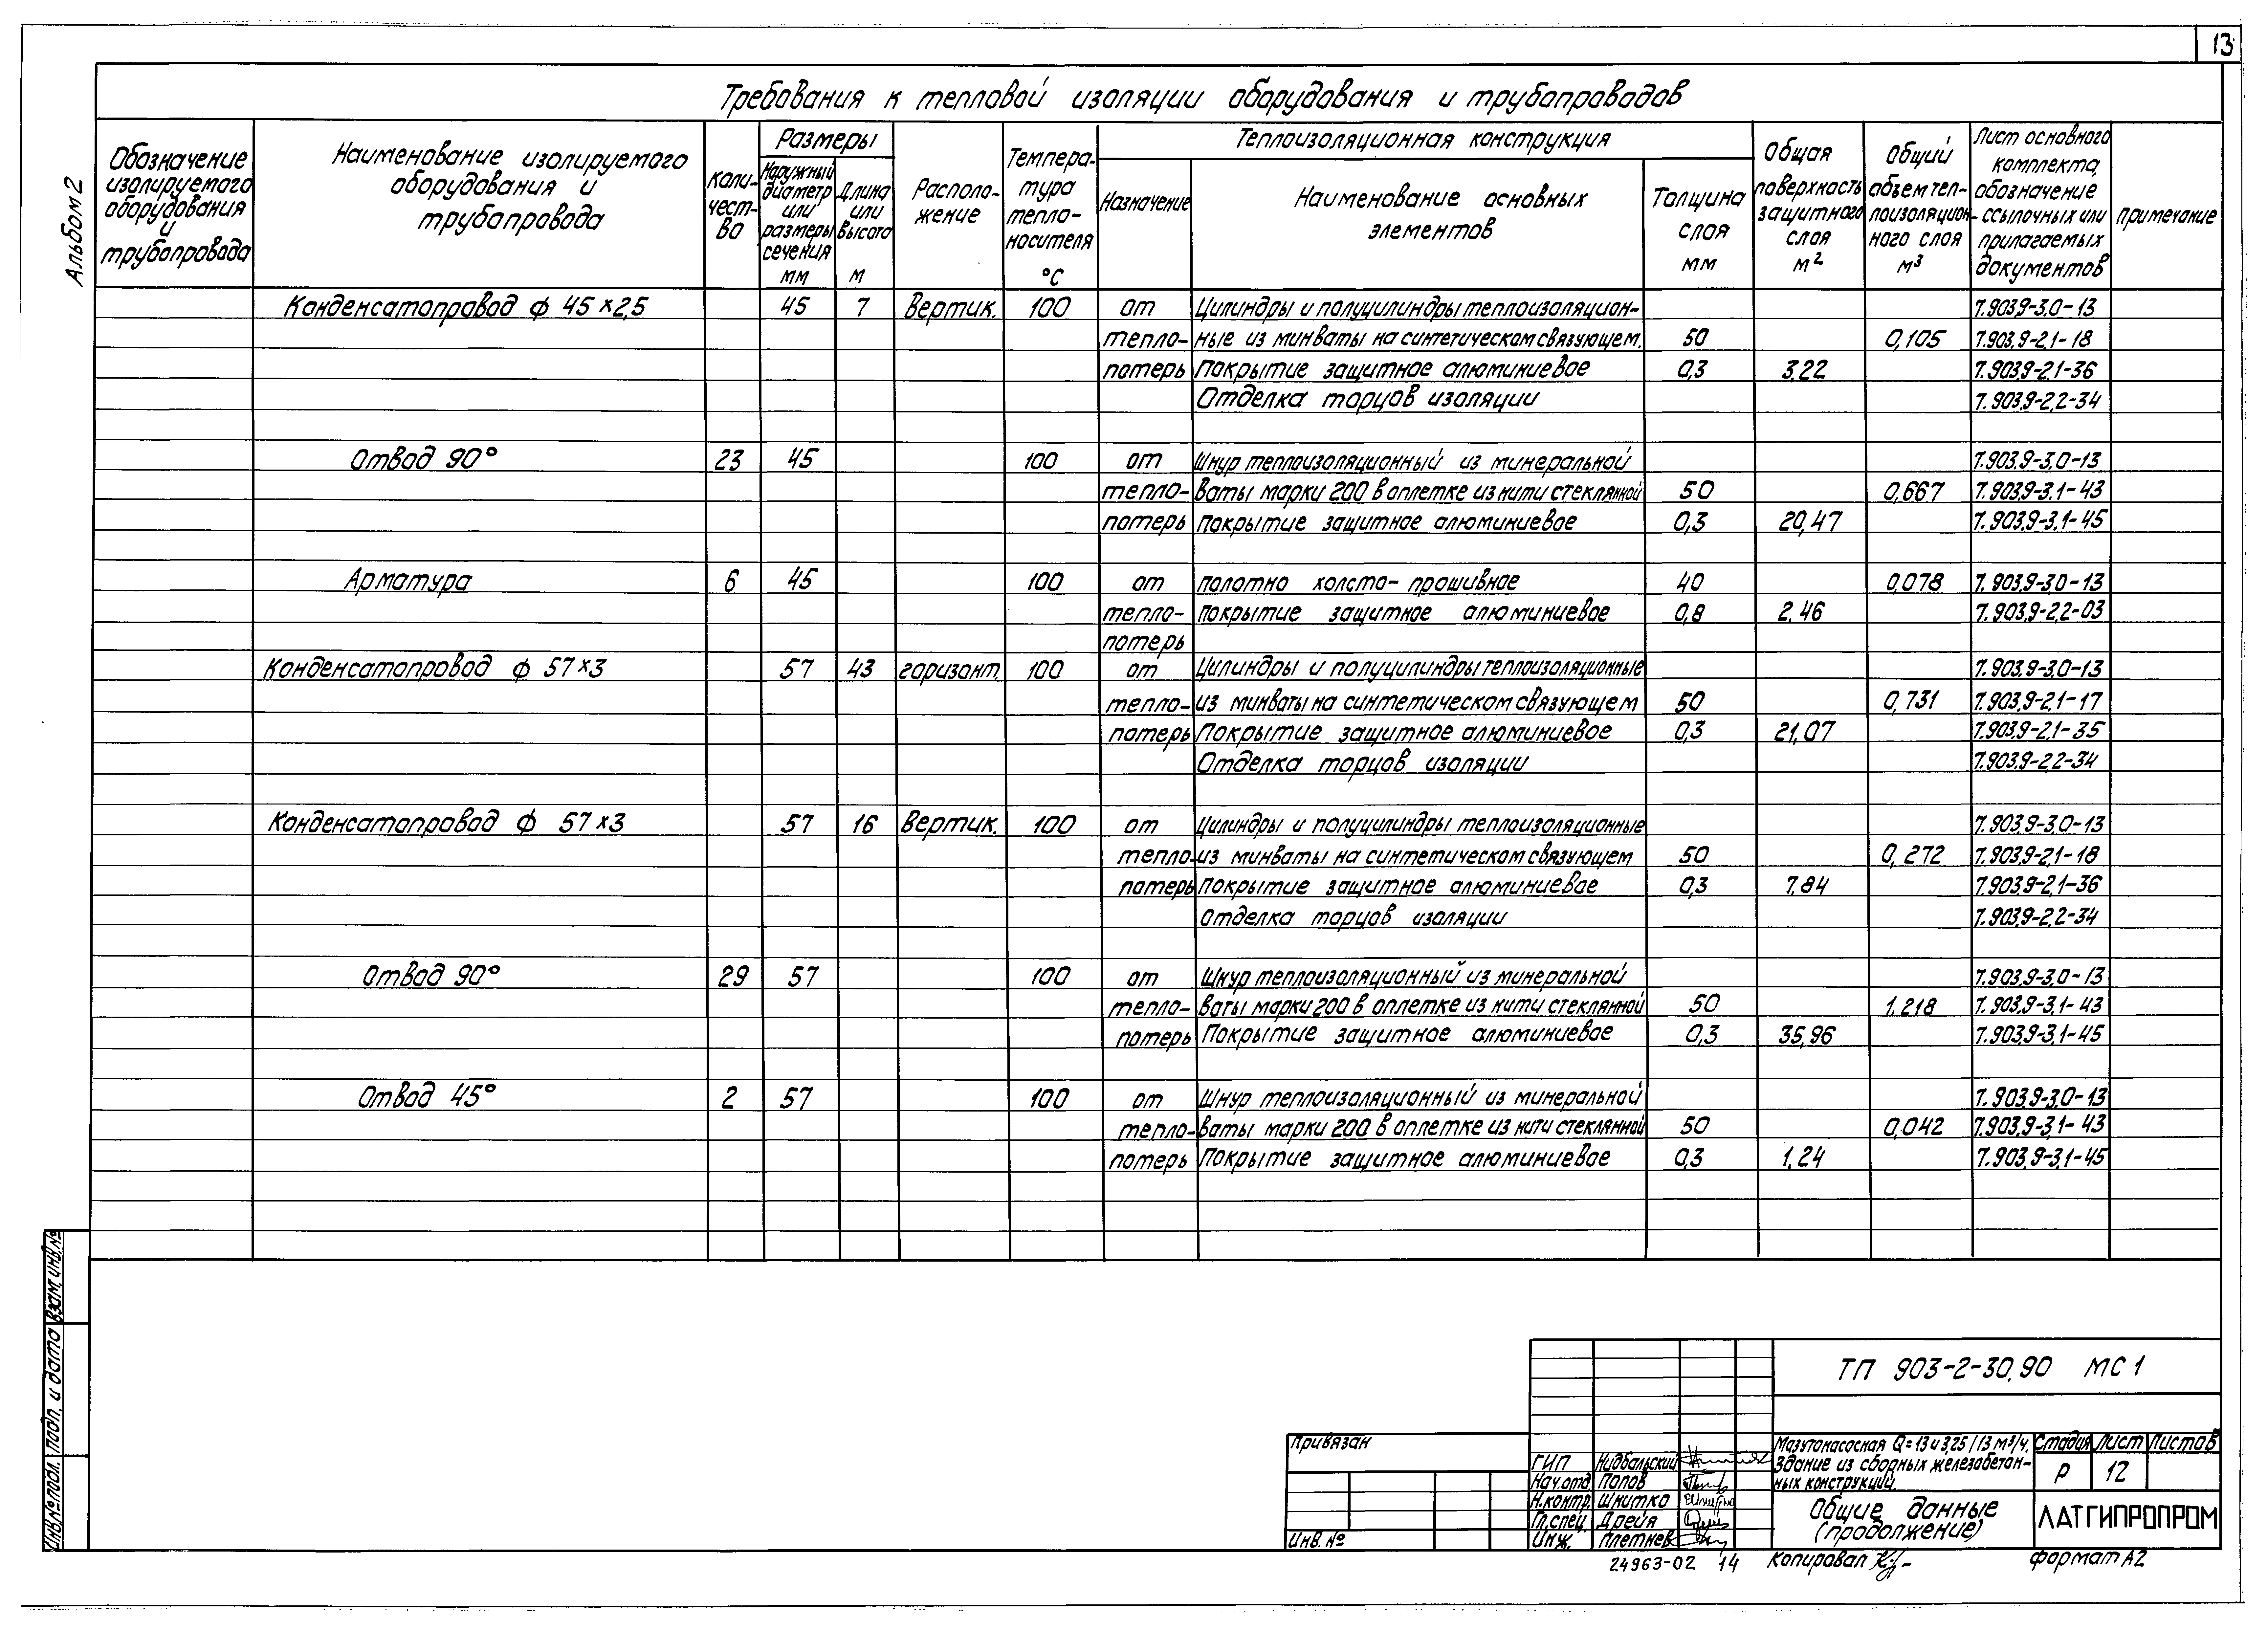 13
Альбом 2
Требования к тепловой изоляции оборудования и трубопроводов
Обозначение изолируемого оборудования и трубопровода
Наименование изолируемого оборудования и трубопровода
Коли-чест-во
Размеры
Наружный диаметр или размеры сечения мм
Длина или высота м
Располо-жение
Темпера-тура тепло-носителя °С
Теплоизоляционная конструкция
Назначение
Наименование основных элементов
Толщина слоя мм
Общая поверхность защитного слоя м²
Общий объем теп-лоизоляцион-ного слоя м³
Лист основного комплекта, обозначение ссылочных или прилагаемых документов
Примечание
Конденсатопровод ф 45×2,5 45 7 Вертик. 100 от Цилиндры и полуцилиндры теплоизоляцион- 7.903.9-3.0-13
тепло- ные из минваты на синтетическом связующем. 50 0,105 7.903.9-2.1-18
потерь Покрытие защитное алюминиевое 0,3 3,22 7.903.9-2.1-36
Отделка торцов изоляции 7.903.9-2.2-34
Отвод 90° 23 45 100 от Шнур теплоизоляционный из минеральной 7.903.9-3.0-13
тепло- ваты марки 200 в оплетке из нити стеклянной 50 0,667 7.903.9-3.1-43
потерь Покрытие защитное алюминиевое 0,3 20,47 7.903.9-3.1-45
Арматура 6 45 100 от полотно холсто-прошивное 40 0,078 7.903.9-3.0-13
тепло- покрытие защитное алюминиевое 0,8 2,46 7.903.9-2.2-03
потерь
Конденсатопровод ф 57×3 57 43 горизонт. 100 от Цилиндры и полуцилиндры теплоизоляционные 7.903.9-3.0-13
тепло- из минваты на синтетическом связующем 50 0,731 7.903.9-2.1-17
потерь Покрытие защитное алюминиевое 0,3 21,07 7.903.9-2.1-35
Отделка торцов изоляции 7.903.9-2.2-34
Конденсатопровод ф 57×3 57 16 Вертик. 100 от Цилиндры и полуцилиндры теплоизоляционные 7.903.9-3.0-13
тепло- из минваты на синтетическом связующем 50 0,272 7.903.9-2.1-18
потерь Покрытие защитное алюминиевое 0,3 7,84 7.903.9-2.1-36
Отделка торцов изоляции 7.903.9-2.2-34
Отвод 90° 29 57 100 от Шнур теплоизоляционный из минеральной 7.903.9-3.0-13
тепло- ваты марки 200 в оплетке из нити стеклянной 50 1.218 7.903.9-3.1-43
потерь Покрытие защитное алюминиевое 0,3 35,96 7.903.9-3.1-45
Отвод 45° 2 57 100 от Шнур теплоизоляционный из минеральной 7.903.9-3.0-13
тепло- ваты марки 200 в оплетке из нити стеклянной 50 0,042 7.903.9-3.1-43
потерь Покрытие защитное алюминиевое 0,3 1,24 7.903.9-3.1-45
Взам. инв. №
Подп. и дата
Инв. № подл.
ТП 903-2-30.90 МС 1
Привязан
Инв. №
ГИП Нидбальский
Нач.отд. Попов
Н.контр. Шнитко
Гл.спец. Дрейя
Инж. Плетнев
Мазутонасосная Q=13 и 3,25/13 м³/ч.
Здание из сборных железобетон-
ных конструкций.
Стадия Лист Листов
Р 12
Общие данные
(продолжение)
ЛАТГИПРОПРОМ
24963-02 14
Копировал
формат А2